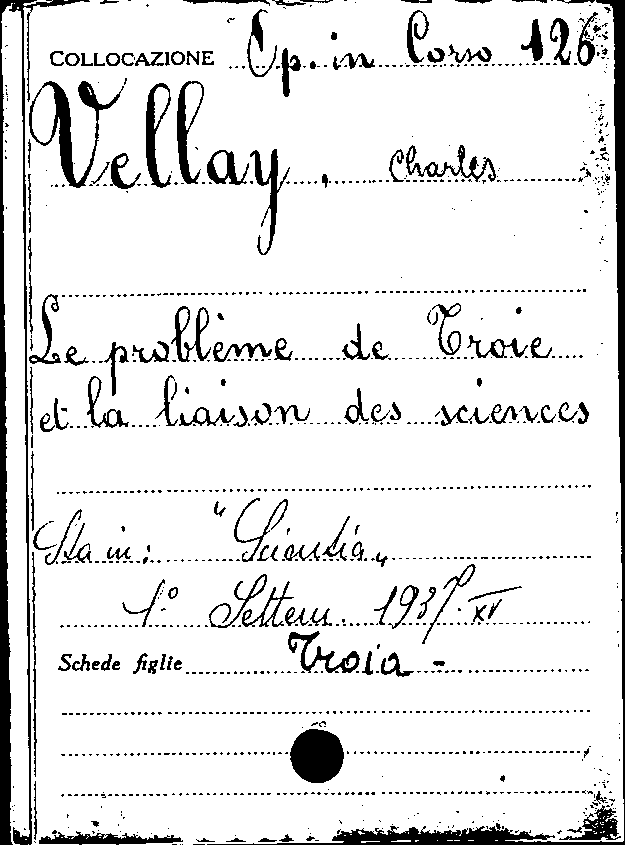 COLLOCAZIONE Op. in Corso 126
Vellay, Charles
Le problème de Troie
et la liaison des sciences
Sta in: "Scientia„
1.° Settem. 1937. XV
Schede figlie Troia -